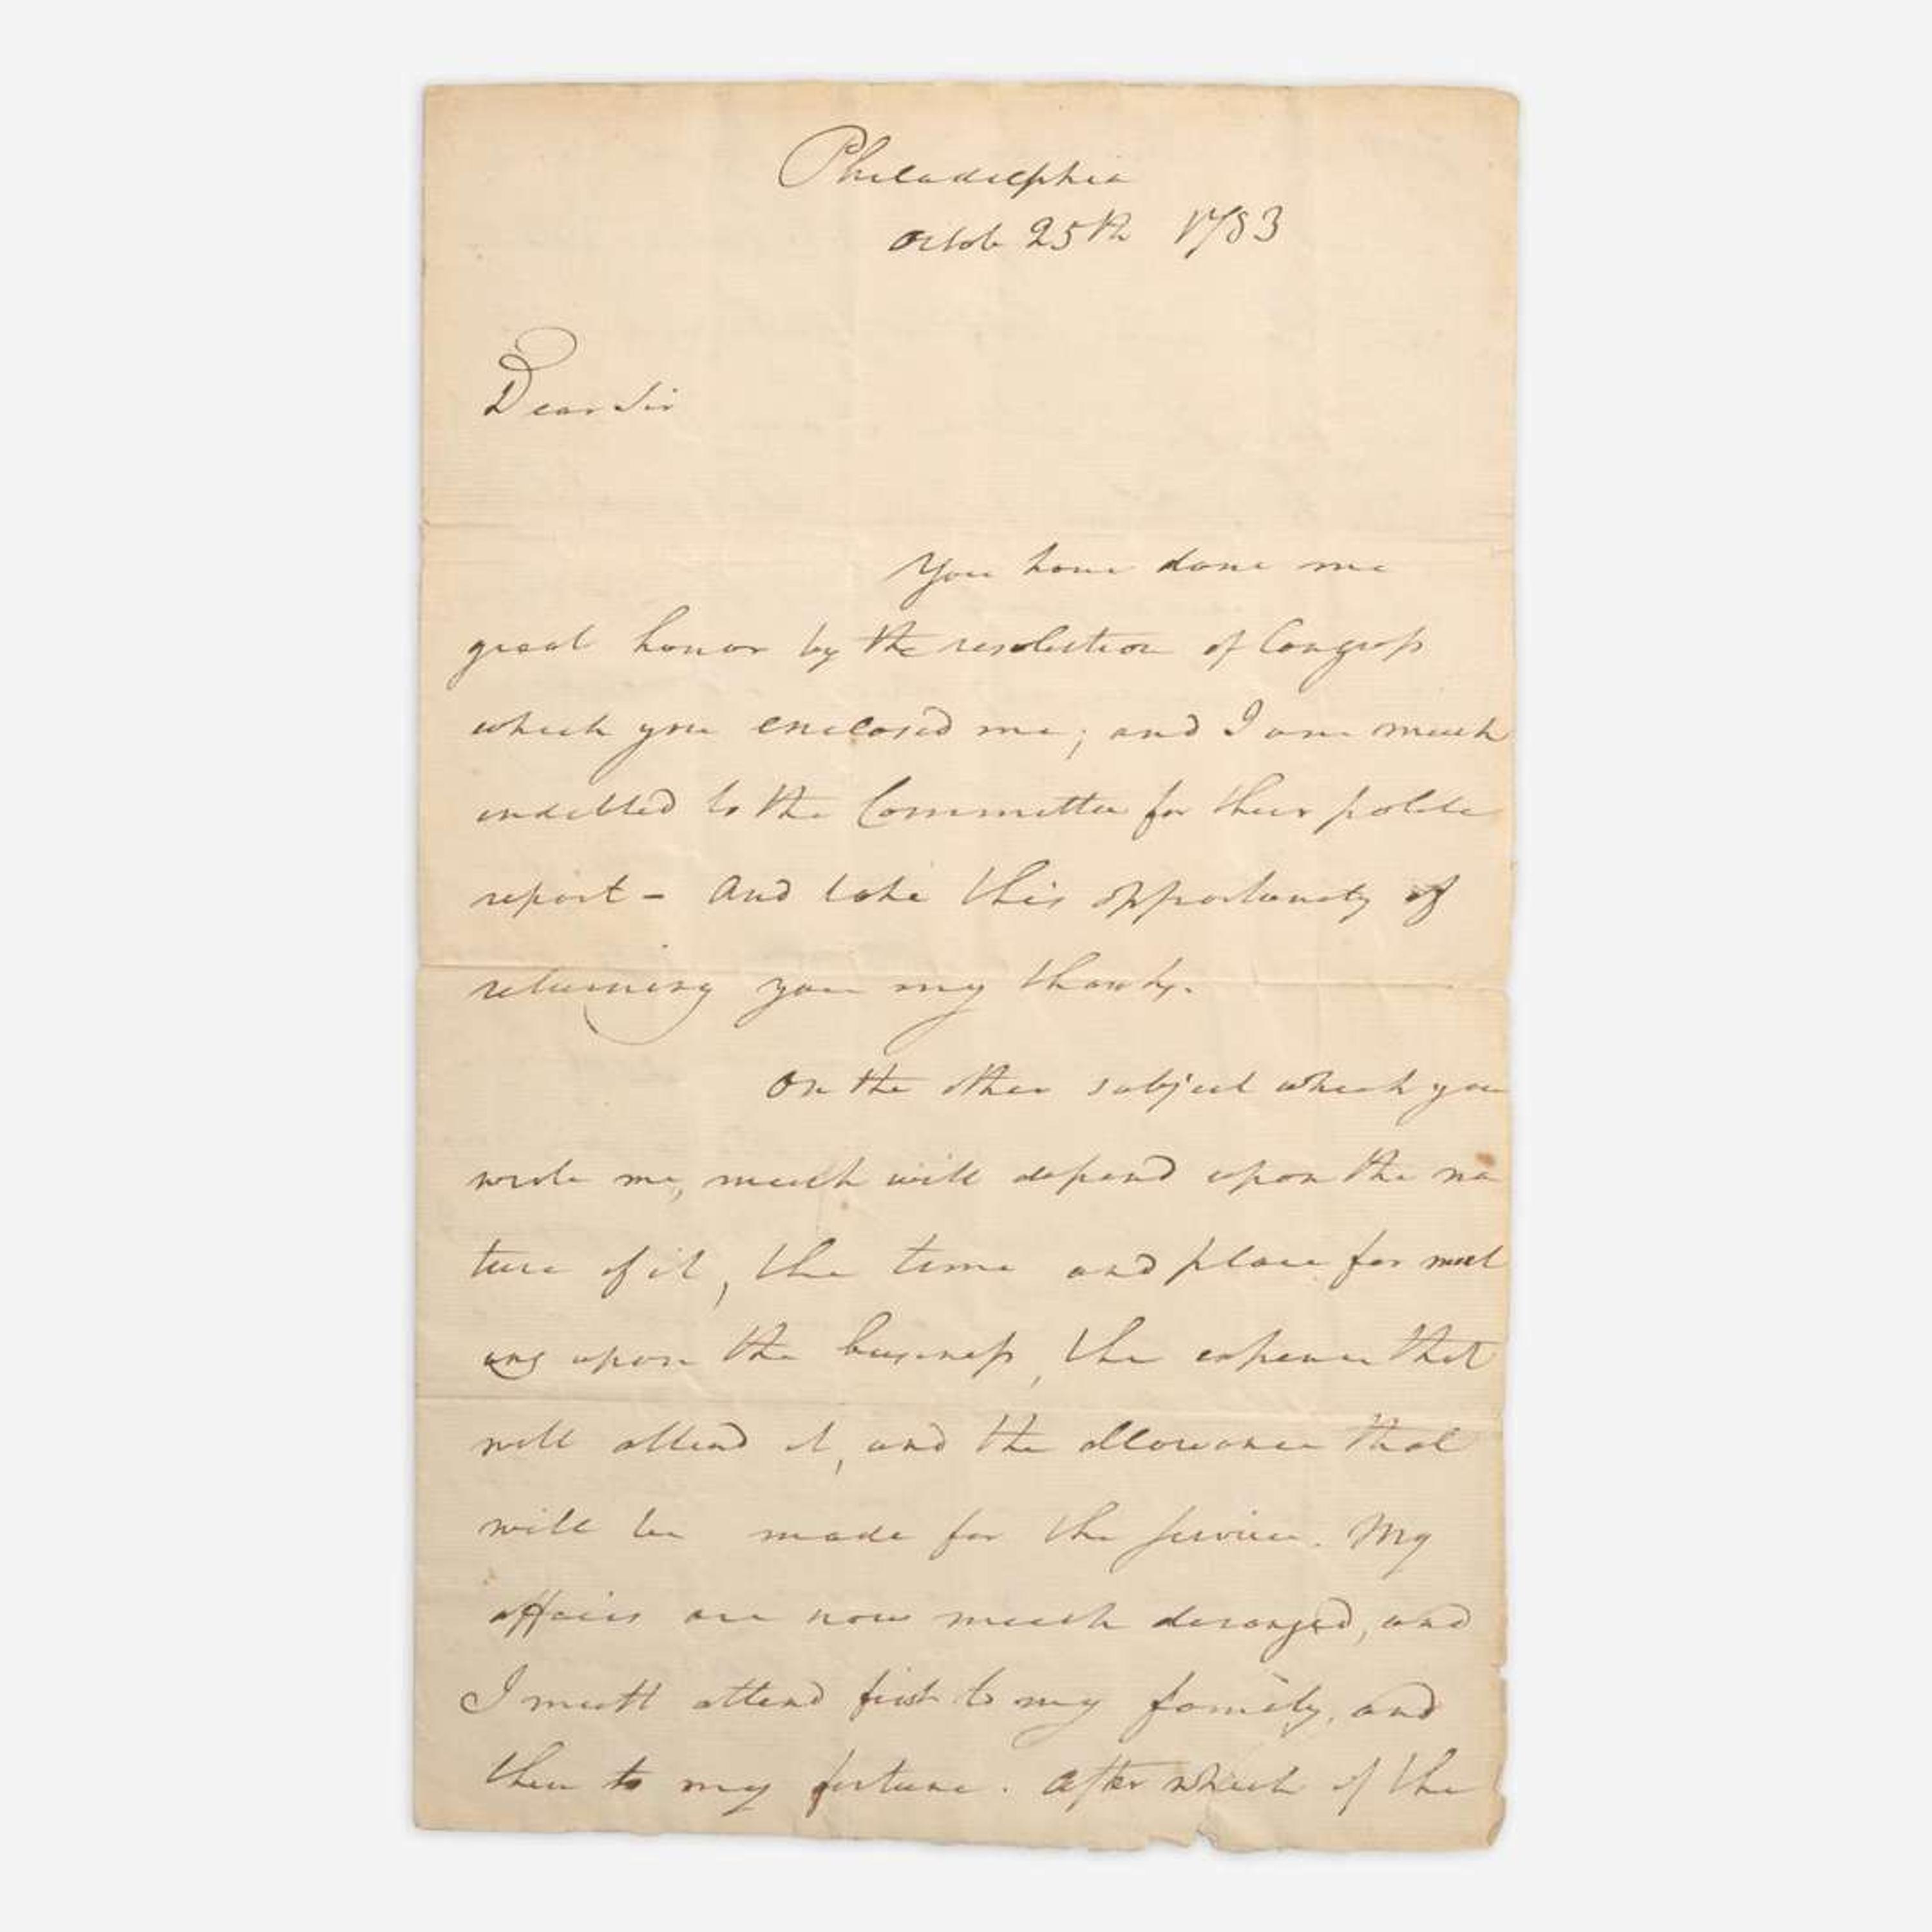 Philadelphia
Octob 25th 1783
Dear Sir
You have done me
great honor by the resolution of Congress
which you enclosed me; and I am much
indebted to the Committee for their polite
report - And take this opportunity of
returning you my thanks.
On the other subject which you
wrote me, much will depend upon the na
ture of it, the time and place for meet
ing upon the business, the expence that
will attend it, and the allowance that
will be made for the service. My
affairs are now much deranged, and
I must attend first to my family, and
then to my fortune. After which if the